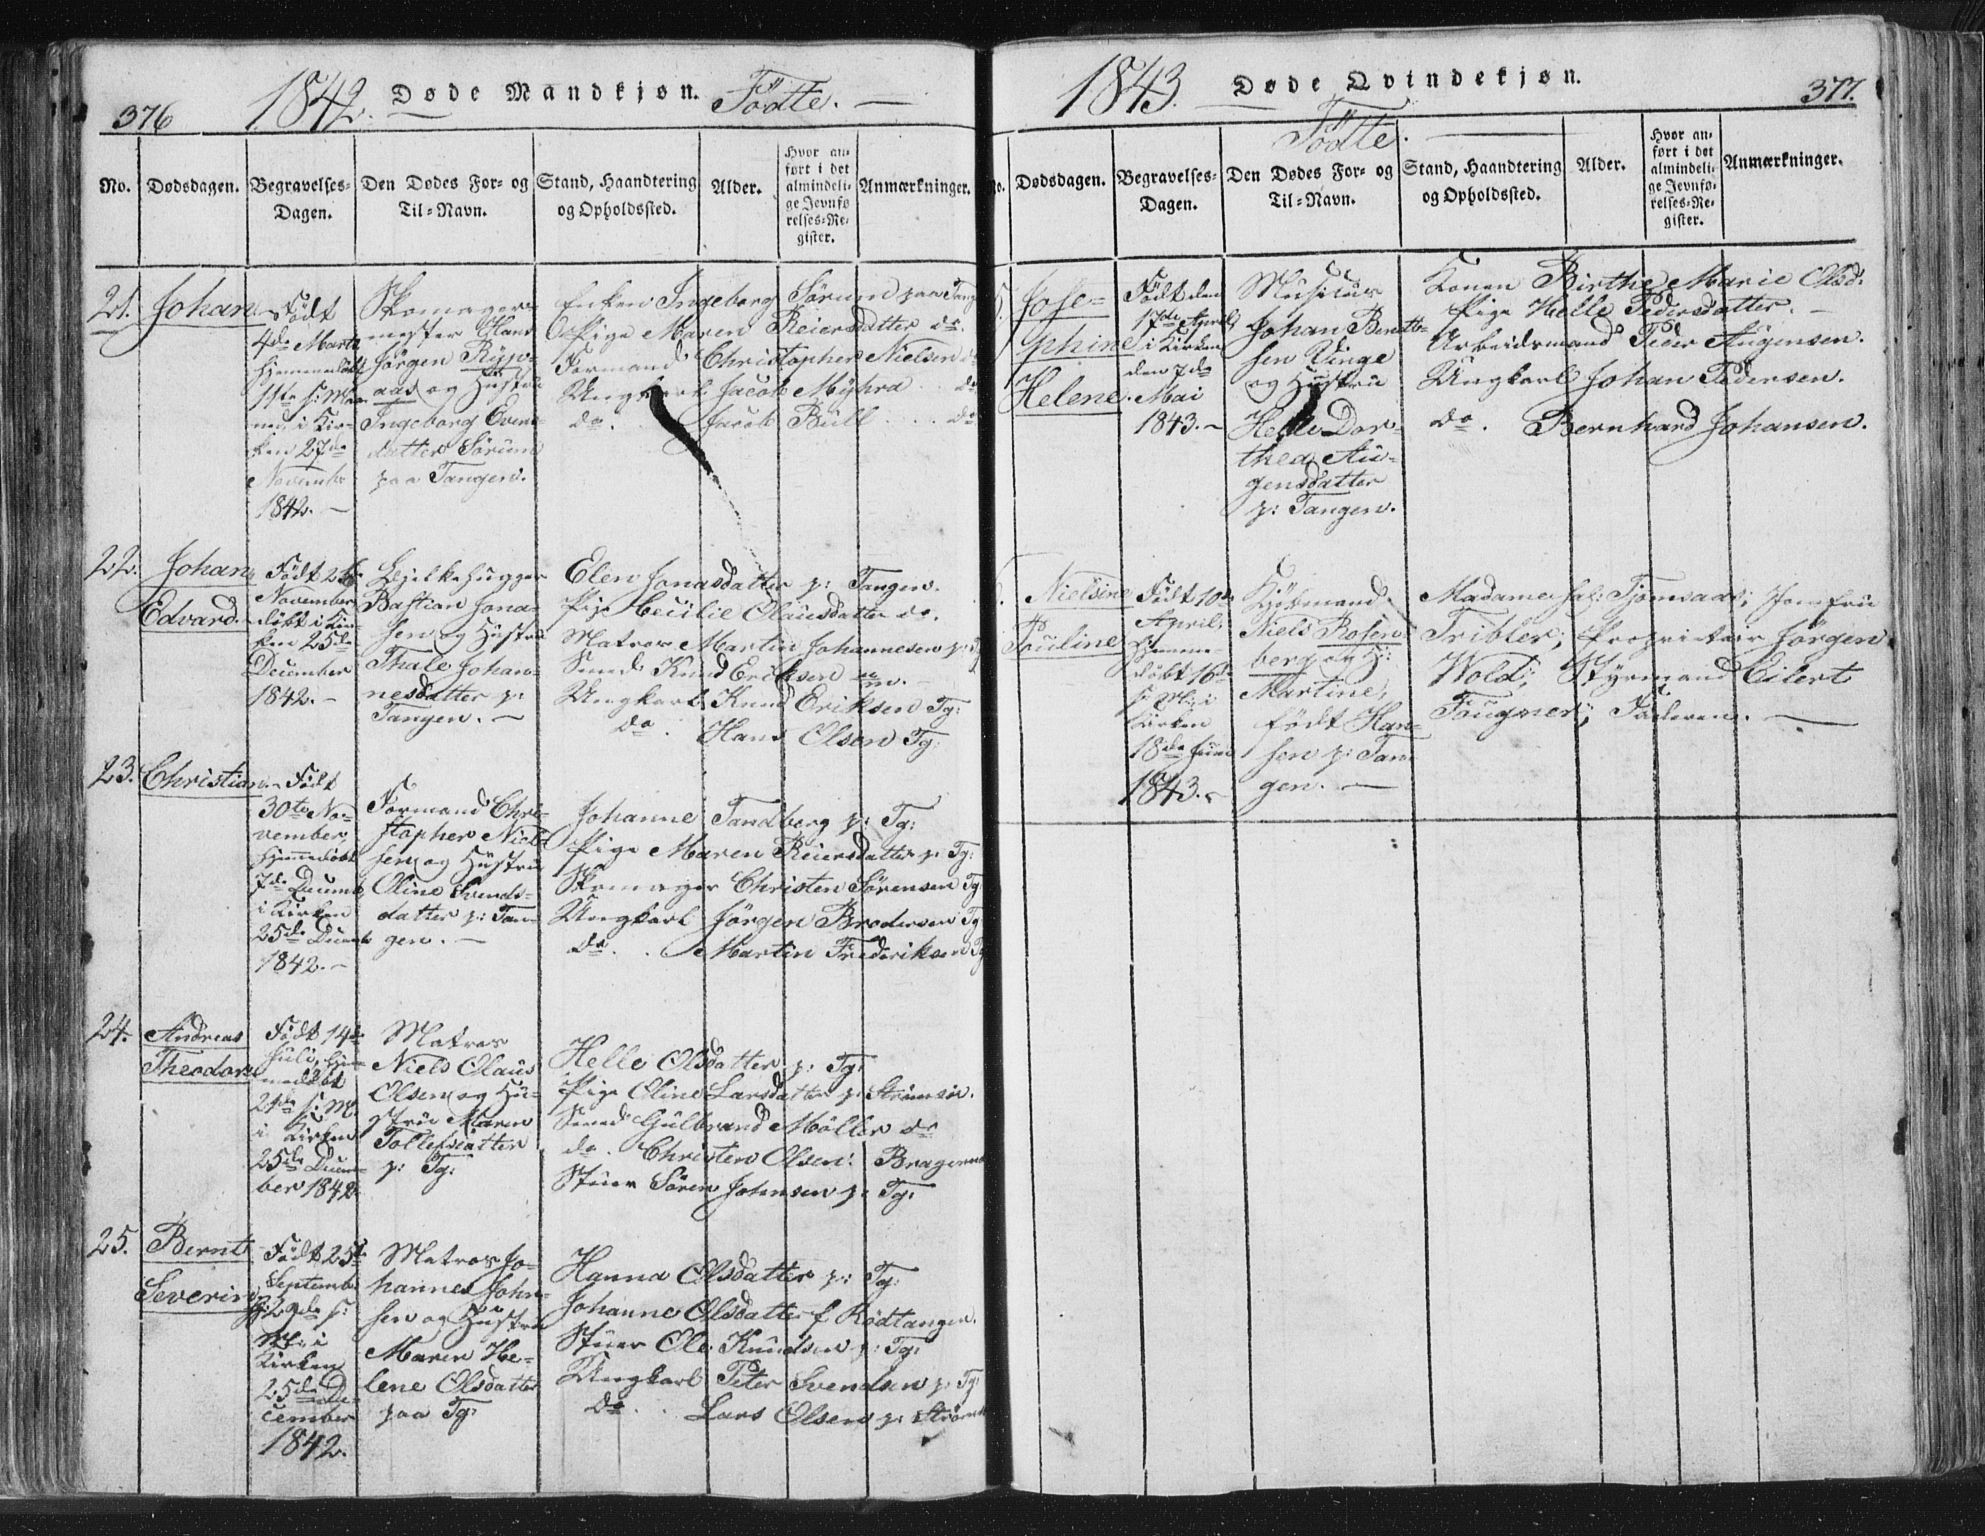 376
1842. Døde Mandkjøn. Födte.
No.
Dødsdagen.
Begravelses-
Dagen.
Den Dødes For- og
Til-Navn.
Stand, Haandtering
og Opholdssted.
Alder.
Hvor an-
ført i det
almindeli-
ge Jevnfø
relses-Re-
gister.
Anmærkninger.
21. Johan
Födt
4de Marts
hjemmedöbt
11te s: Maa-
ned i Kir-
ken 27de
November
1842.
Skomager-
mester Hans
Jörgen Ryp-
aas og Hustru
Ingeborg Evens-
datter Sörum
paa Tangen.
Enken Ingeborg Sörum paa Tang
Pige Maren Reiersdatter do.
Formand Christopher Nielsen do
Ungkarl Jacob Myhra do
do. Jacob Bull do
22. Johan
Edvard.
Födt 26
November
döbt i Kir-
ken 25de
December
1842.
Bjelkehugger
Bastian Jona-
sen og Hustru
Thale Johan-
nesdatter p:
Tangen.
Elen Jonasdatter p: Tangen.
Pige Cecilie Olausdatter do.
Matros Martin Johannesen p:
Svend Knud Eriksen
Ungkarl Knud Eriksen Tg:
do. Hans Olsen Tg:
23. Christian.
Födt
30te No-
vember,
hjemmedöbt
7de Decemb
i Kirken
25de Decemb
1842.
Formand Chri-
stopher Niel-
sen og Hustru
Oline Svends-
datter p: Tan-
gen.
Johanne Tandberg p: Tg:
Pige Maren Reiersdatter p: Tg:
Skomager Christen Sörensen Tg
Ungkarl Jörgen Brodersen Tg
do. Martin Frederiksen Tg
24. Andreas
Theodor
Födt 14de
Juli, hjem-
medöbt
21de s: M.
i Kirken
25de Decem-
ber 1842
Matros
Niels Olaus
Olsen og Hu-
stru Maren
Tollefsdatter
p: Tg:
Helle Olsdatter p: Tg:
Pige Oline Larsdatter p: Strömsöe.
Svend Gulbrand Möller do
do. Christen Olsen: Bragernes
Stuer Sören Johnsen p: Tg:
25. Bernt
Severin
Födt 25de
Septemb
29de s:
M: i
Kirken
25de De-
cember
1842.
Matros Jo-
hannes John-
sen og Hustru
Maren He-
lene Olsdatter
paa Tg:
Hanna Olsdatter p: Tg:
Johanne Olsdatter f Rödtangen.
Stuer Ole Knudsen p: Tg:
Ungkarl Peter Svendsen p: Tg:
do. Lars Olsen p: Ströms
1843. Døde Qvindekjøn.
377.
Födte.
No.
Dødsdagen.
Begravelses-
Dagen.
Den Dødes For- og
Til-Navn.
Stand, Haandtering
og Opholdssted.
Alder.
Hvor an-
ført i det
almindeli-
ge Jevnfø-
relses-Re-
gister.
Anmærkninger.
5. Jose-
phine
Helene.
Födt den
17de April
i Kirken
den 7de
Mai
1843.
Musicus
Johan Berntt-
sen Unge
og Hustru
Helle Dor-
thea Au-
gensdatter
p: Tangen.
Konen Birthe Marie Olsd.
Pige Helle Pedersdatter.
Arbeidsmand Peder Augensen.
Ungkarl Johan Pedersen.
do. Bernhard Johansen.
Nielsine
Pouline
Födt 10de
April,
hjemme-
döbt 16de
s. M: i
Kirken
18de Juni
1843.
Kjöbmand
Niels Rosen-
berg og H:
Martine,
födt Han-
sen p: Tan-
gen.
Madame sal: Tjomsaas; Jomfru
Tribler; Proprietær Jörgen
Wold; Styrmand Eilert
Fougner; Faderen.